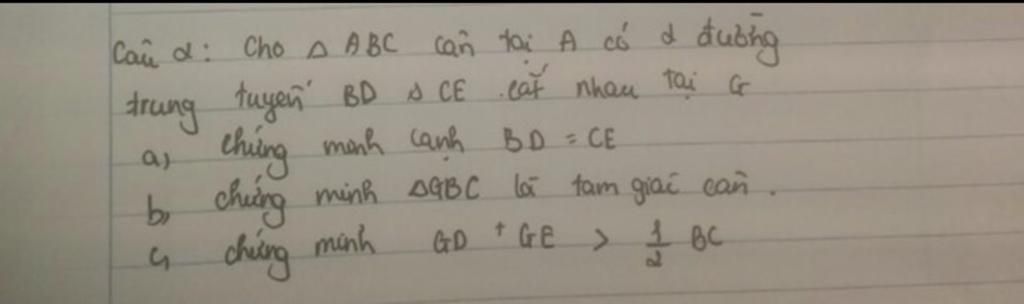 Câu 2: Cho △ ABC cân tại A có 2 đường
trung tuyến BD & CE cắt nhau tại G
a, chứng minh cạnh BD = CE
b, chứng minh △GBC là tam giác cân.
c, chứng minh GD + GE > 1/2 BC